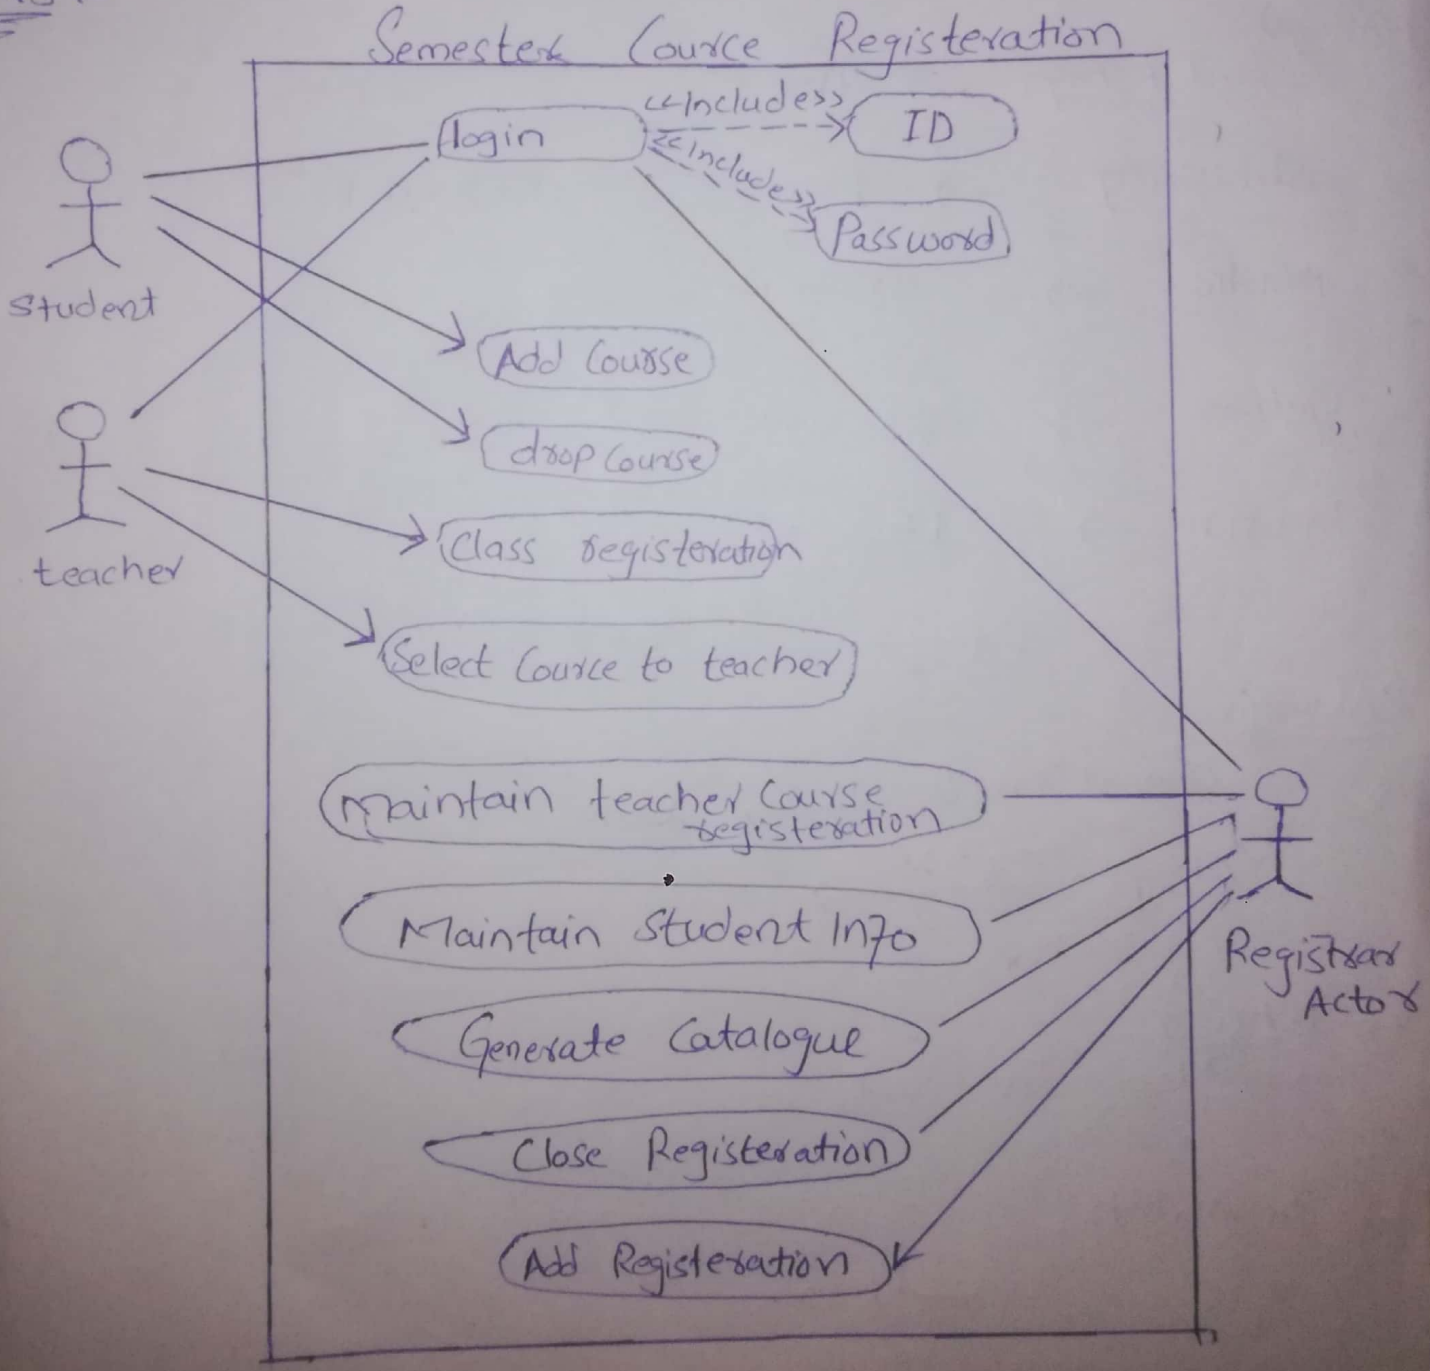 Semester Cource Registeration
login
<<Include>>
ID
<<include>>
Password
Student
Add Course
drop Course
teacher
Class registeration
Select Cource to teacher
Maintain teacher Course
registeration
Maintain Student Info
Registrar
Actor
Generate Catalogue
Close Registeration
Add Registeration